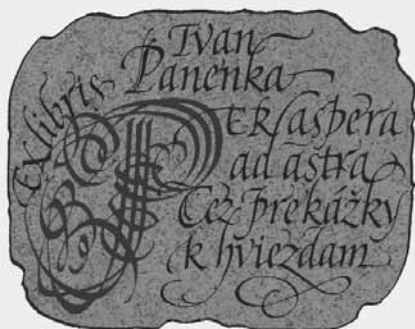 Ex libris
Ivan
Panenka
PER aspera
ad astra
Cez prekážky
k hviezdam